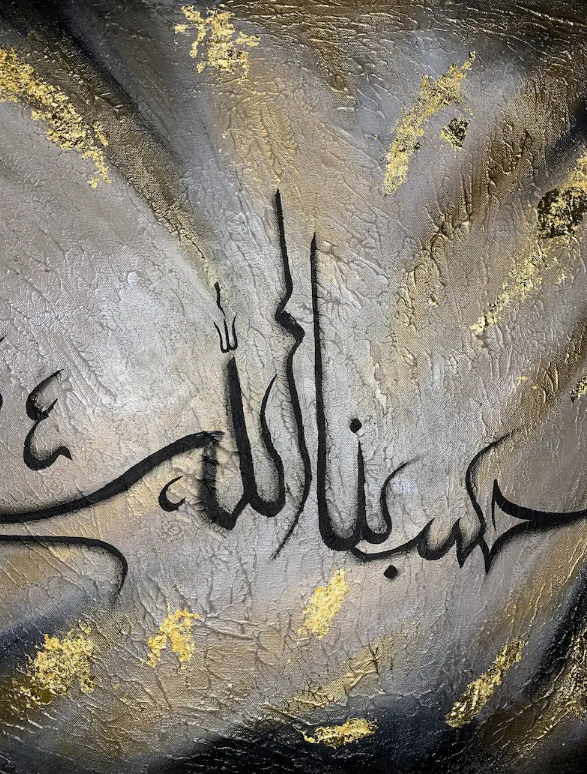 حسبنا الله